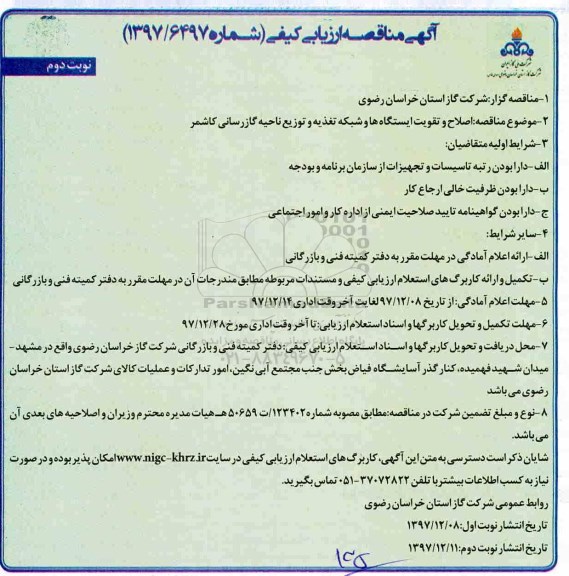 آگهی مناقصه ارزیابی کیفی (شماره ۱۳۹۷/۶۴۹۷)
نوبت دوم
۱-مناقصه گزار:شرکت گاز استان خراسان رضوی
۲-موضوع مناقصه:اصلاح و تقویت ایستگاه ها و شبکه تغذیه و توزیع ناحیه گازرسانی کاشمر
۳-شرایط اولیه متقاضیان:
الف-دارا بودن رتبه تاسیسات و تجهیزات از سازمان برنامه و بودجه
ب-دارا بودن ظرفیت خالی ارجاع کار
ج-دارا بودن گواهینامه تایید صلاحیت ایمنی از اداره کار و امور اجتماعی
۴-سایر شرایط:
الف-ارائه اعلام آمادگی در مهلت مقرر به دفتر کمیته فنی و بازرگانی
ب-تکمیل و ارائه کاربرگ های استعلام ارزیابی کیفی و مستندات مربوطه مطابق مندرجات آن در مهلت مقرر به دفتر کمیته فنی و بازرگانی
۵-مهلت اعلام آمادگی: از تاریخ ۹۷/۱۲/۰۸ لغایت آخر وقت اداری ۹۷/۱۲/۱۴
۶-مهلت تکمیل و تحویل کاربرگها و اسناد استعلام ارزیابی: تا آخر وقت اداری مورخ ۹۷/۱۲/۲۸
۷-محل دریافت و تحویل کاربرگها و اسناد استعلام ارزیابی کیفی:دفتر کمیته فنی و بازرگانی شرکت گاز خراسان رضوی واقع در مشهد-
میدان شهید فهمیده، کنار گذر آسایشگاه فیاض بخش جنب مجتمع آبی نگین،امور تدارکات و عملیات کالای شرکت گاز استان خراسان
رضوی می باشد
۸-نوع و مبلغ تضمین شرکت در مناقصه:مطابق مصوبه شماره ۱۲۳۴۰۲/ت ۵۰۶۵۹ هـ هیات مدیره محترم وزیران و اصلاحیه های بعدی آن
می باشد.
شایان ذکر است دسترسی به متن این آگهی، کاربرگ های استعلام ارزیابی کیفی در سایت www.nigc-khrz.ir امکان پذیر بوده و در صورت
نیاز به کسب اطلاعات بیشتر با تلفن ۳۷۰۷۲۸۲۲-۰۵۱ تماس بگیرید.
روابط عمومی شرکت گاز استان خراسان رضوی
تاریخ انتشار نوبت اول:۱۳۹۷/۱۲/۰۸
تاریخ انتشار نوبت دوم:۱۳۹۷/۱۲/۱۱